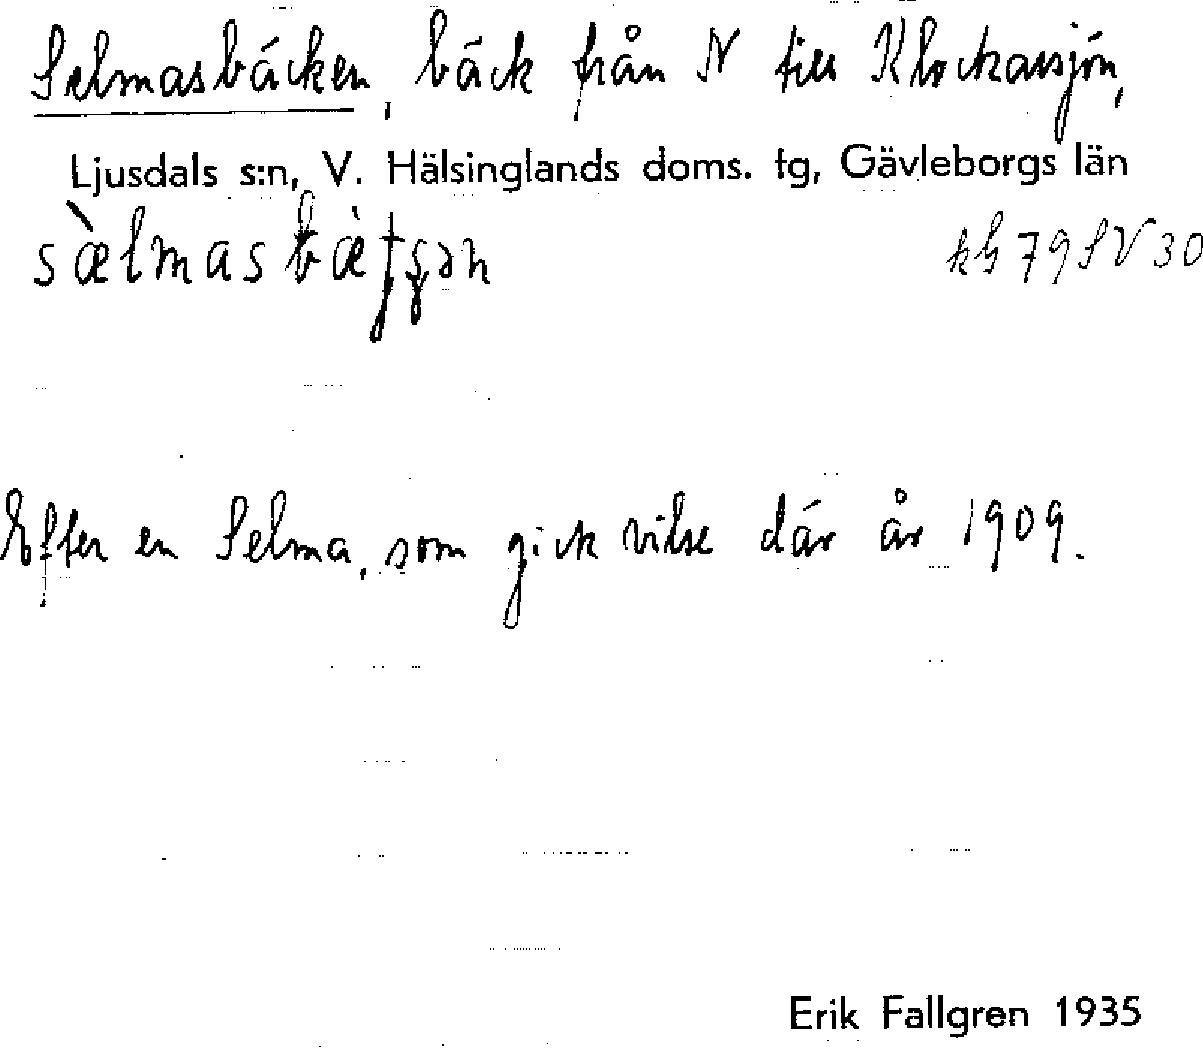 Selmasbäcken, bäck från N till Klockarsjön,
Ljusdals s:n, V. Hälsinglands doms. tg, Gävleborgs län
kb 79 SV 30
Efter en Selma, som gick vilse där år 1909.
Erik Fallgren 1935